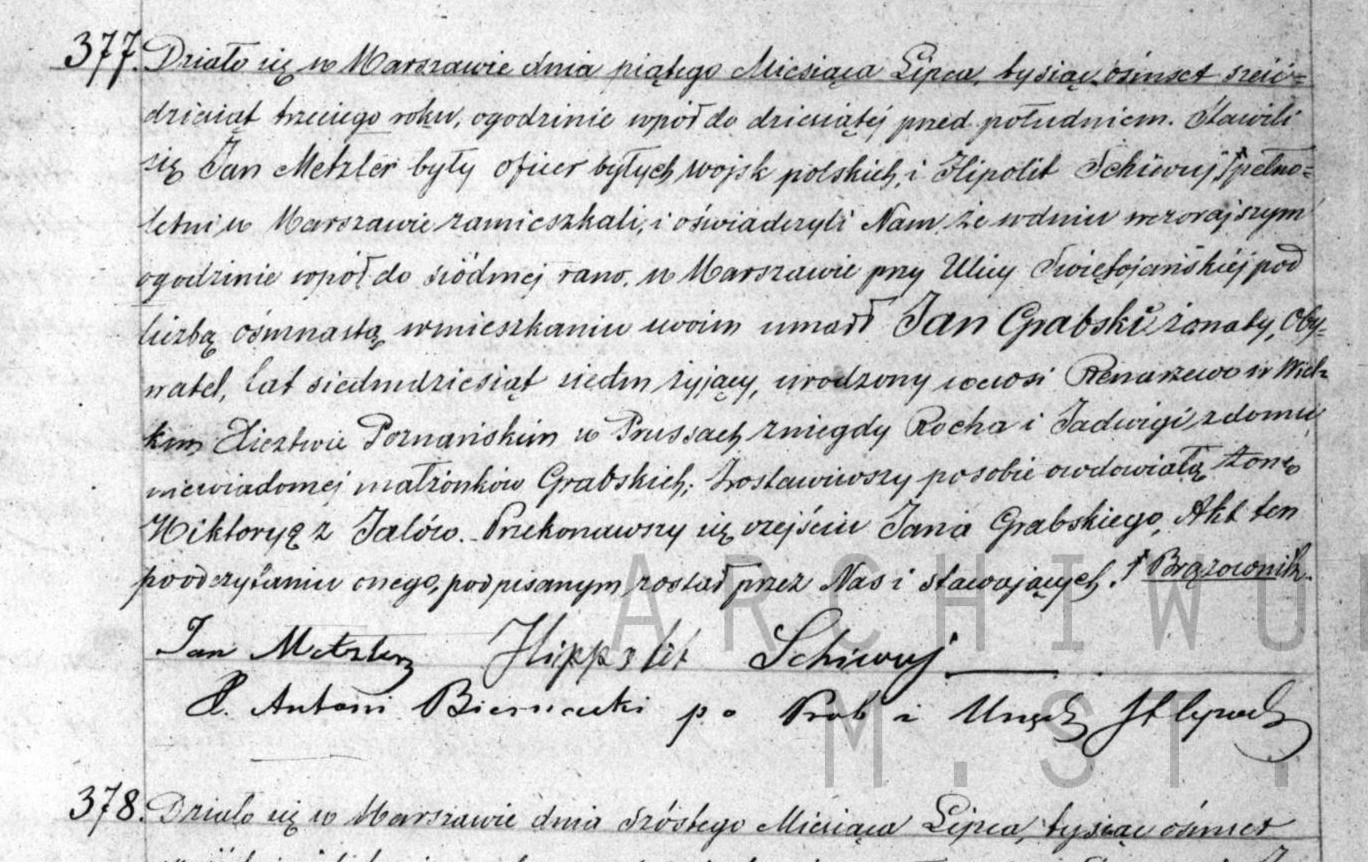 377. Działo się w Warszawie dnia piątego Miesiąca Lipca, tysiąc ośmset sześć=
dziesiąt trzeciego roku, ogodzinie wpół do dziesiątéj przed południem. Stawili
się Jan Metzler były oficer byłych wojsk polskich, i Hipolit Schiwuj, pełno=
letni w Warszawie zamieszkali, i oświadczyli Nam że wdniu wczorajszym
ogodzinie wpół do siódmej rano, w Warszawie przy Ulicy Swiętojańskiéj pod
liczbą ośmnastą wmieszkaniu swoim umarł Jan Grabski, żonaty, Oby-
watel, lat siedmdziesiąt siedm żyjący, urodzony wewsi Renarzewo w Wiel-
kim Xięztwie Poznańskim w Prussach zniegdy Rocha i Jadwigi zdomu
niewiadomej małżonków Grabskich; Zostawiwszy posobie owdowiałą żonę
Wiktoryę z Jalów. Przekonawszy się ozejściu Jana Grabskiego, Akt ten
poodczytaniu onego, podpisanym został przez Nas i stawających. Brązownik.
ARCHIWU
Jan Metzler Hippolit Schiwuj
X. Antoni Biernacki p o Prob i Urzęd St Cyw
M. ST.
378. Działo się w Warszawie dnia szóstego Miesiąca Lipca, tysiąc ośmset